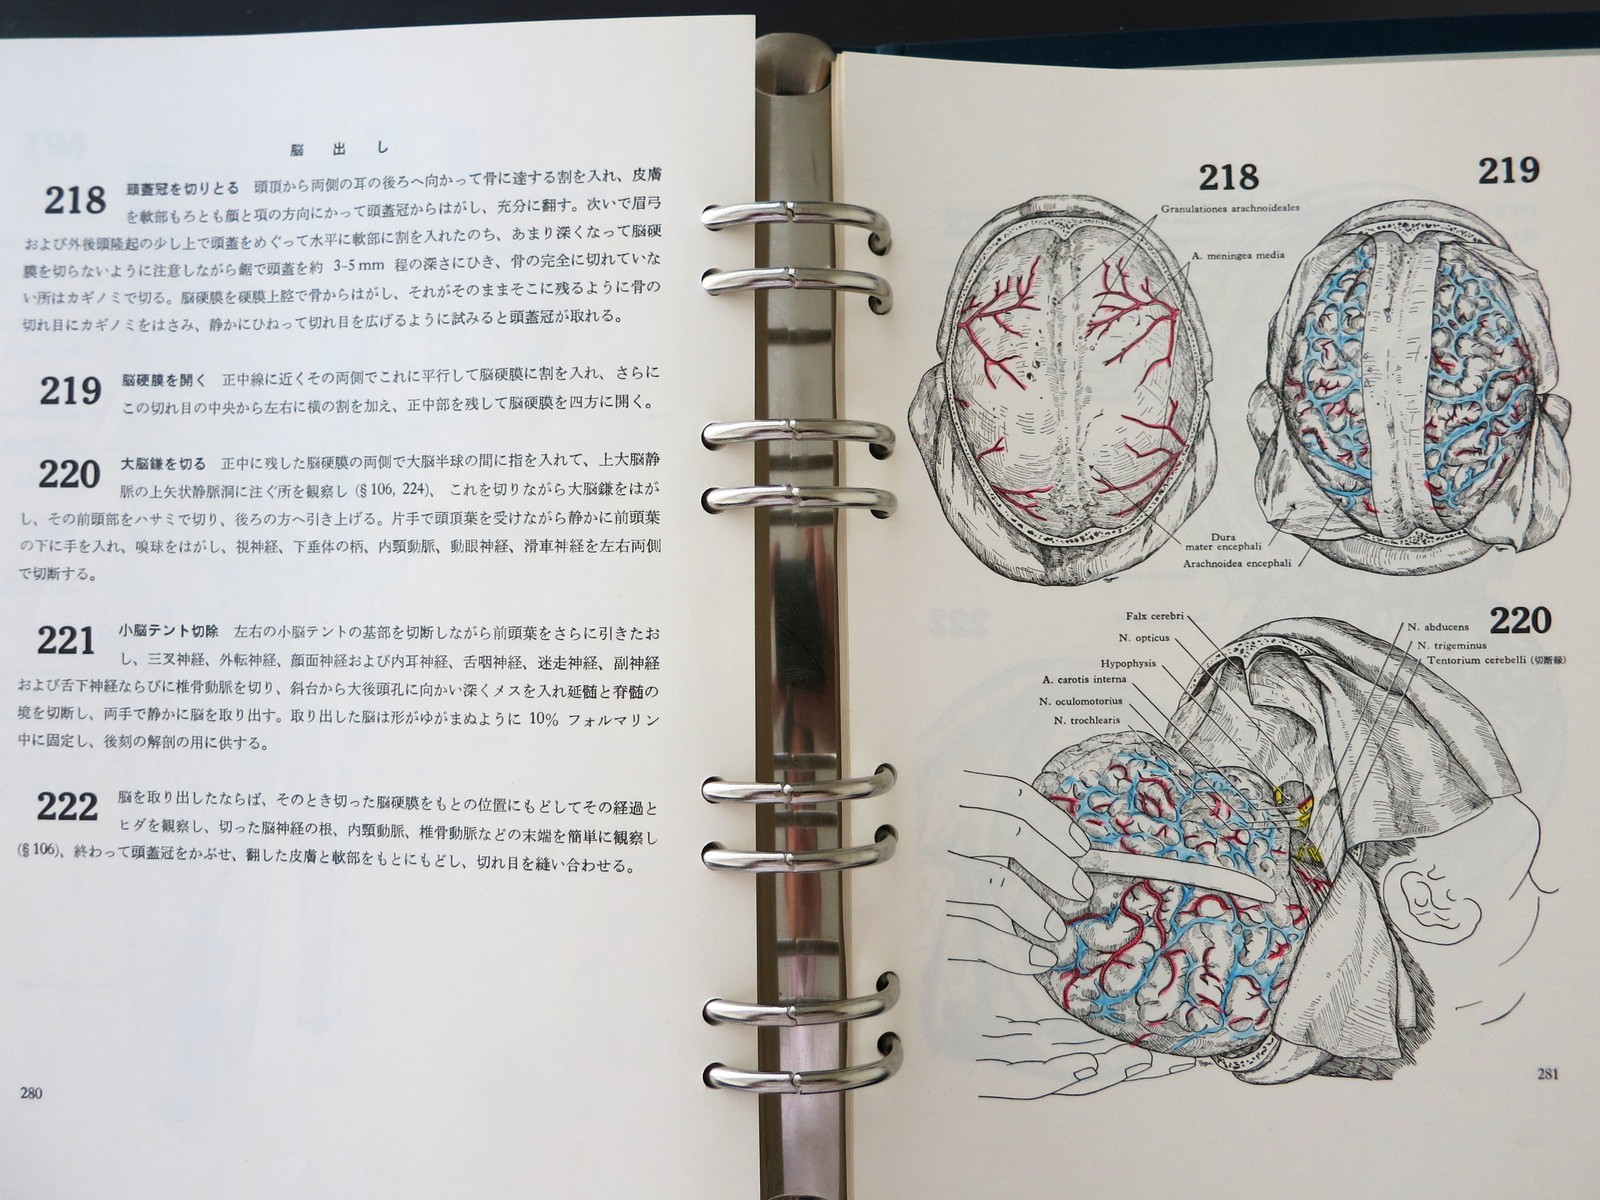 脳出し
218 頭蓋冠を切りとる 頭頂から両側の耳の後ろへ向かって骨に達する割を入れ、皮膚
を軟部もろとも顔と項の方向にかって頭蓋冠からはがし、充分に翻す。次いで眉弓
および外後頭隆起の少し上で頭蓋をめぐって水平に軟部に割を入れたのち、あまり深くなって脳硬
膜を切らないように注意しながら鋸で頭蓋を約 3-5mm 程の深さにひき、骨の完全に切れていな
い所はカギノミで切る。脳硬膜を硬膜上腔で骨からはがし、それがそのままそこに残るように骨の
切れ目にカギノミをはさみ、静かにひねって切れ目を広げるように試みると頭蓋冠が取れる。
219 脳硬膜を開く 正中線に近くその両側でこれに平行して脳硬膜に割を入れ、さらに
この切れ目の中央から左右に横の割を加え、正中部を残して脳硬膜を四方に開く。
220 大脳鎌を切る 正中に残した脳硬膜の両側で大脳半球の間に指を入れて、上大脳静
脈の上矢状静脈洞に注ぐ所を観察し (§106, 224)、これを切りながら大脳鎌をはが
し、その前頭部をハサミで切り、後ろの方へ引き上げる。片手で頭頂葉を受けながら静かに前頭葉
の下に手を入れ、嗅球をはがし、視神経、下垂体の柄、内頸動脈、動眼神経、滑車神経を左右両側
で切断する。
221 小脳テント切除 左右の小脳テントの基部を切断しながら前頭葉をさらに引きたお
し、三叉神経、外転神経、顔面神経および内耳神経、舌咽神経、迷走神経、副神経
および舌下神経ならびに椎骨動脈を切り、斜台から大後頭孔に向かい深くメスを入れ延髄と脊髄の
境を切断し、両手で静かに脳を取り出す。取り出した脳は形がゆがまぬように 10% フォルマリン
中に固定し、後刻の解剖の用に供する。
222 脳を取り出したならば、そのとき切った脳硬膜をもとの位置にもどしてその経過と
ヒダを観察し、切った脳神経の根、内頸動脈、椎骨動脈などの末端を簡単に観察し
(§106)、終わって頭蓋冠をかぶせ、翻した皮膚と軟部をもとにもどし、切れ目を縫い合わせる。
280
218
219
Granulationes arachnoideales
A. meningea media
Dura
mater encephali
Arachnoidea encephali
220
Falx cerebri
N. opticus
Hypophysis
A. carotis interna
N. oculomotorius
N. trochlearis
N. abducens
N. trigeminus
Tentorium cerebelli (切断縁)
281